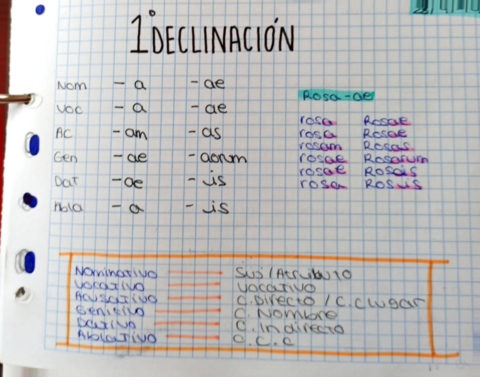 1º DECLINACIÓN
Nom -a -ae
Voc -a -ae
AC -am -as
Gen -ae -aorum
Dat -ae -is
Abla -a -is
Rosa-ae
rosa Rosae
rosa Rosae
rosam Rosas
rosae Rosarum
rosae Rosais
rosa Rosis
Nominativo Suj/Atributo
Vocativo Vocativo
Acusativo C.Directo / C.C Lugar
Genitivo C. Nombre
Dativo C. Indirecto
Ablativo C.C.C